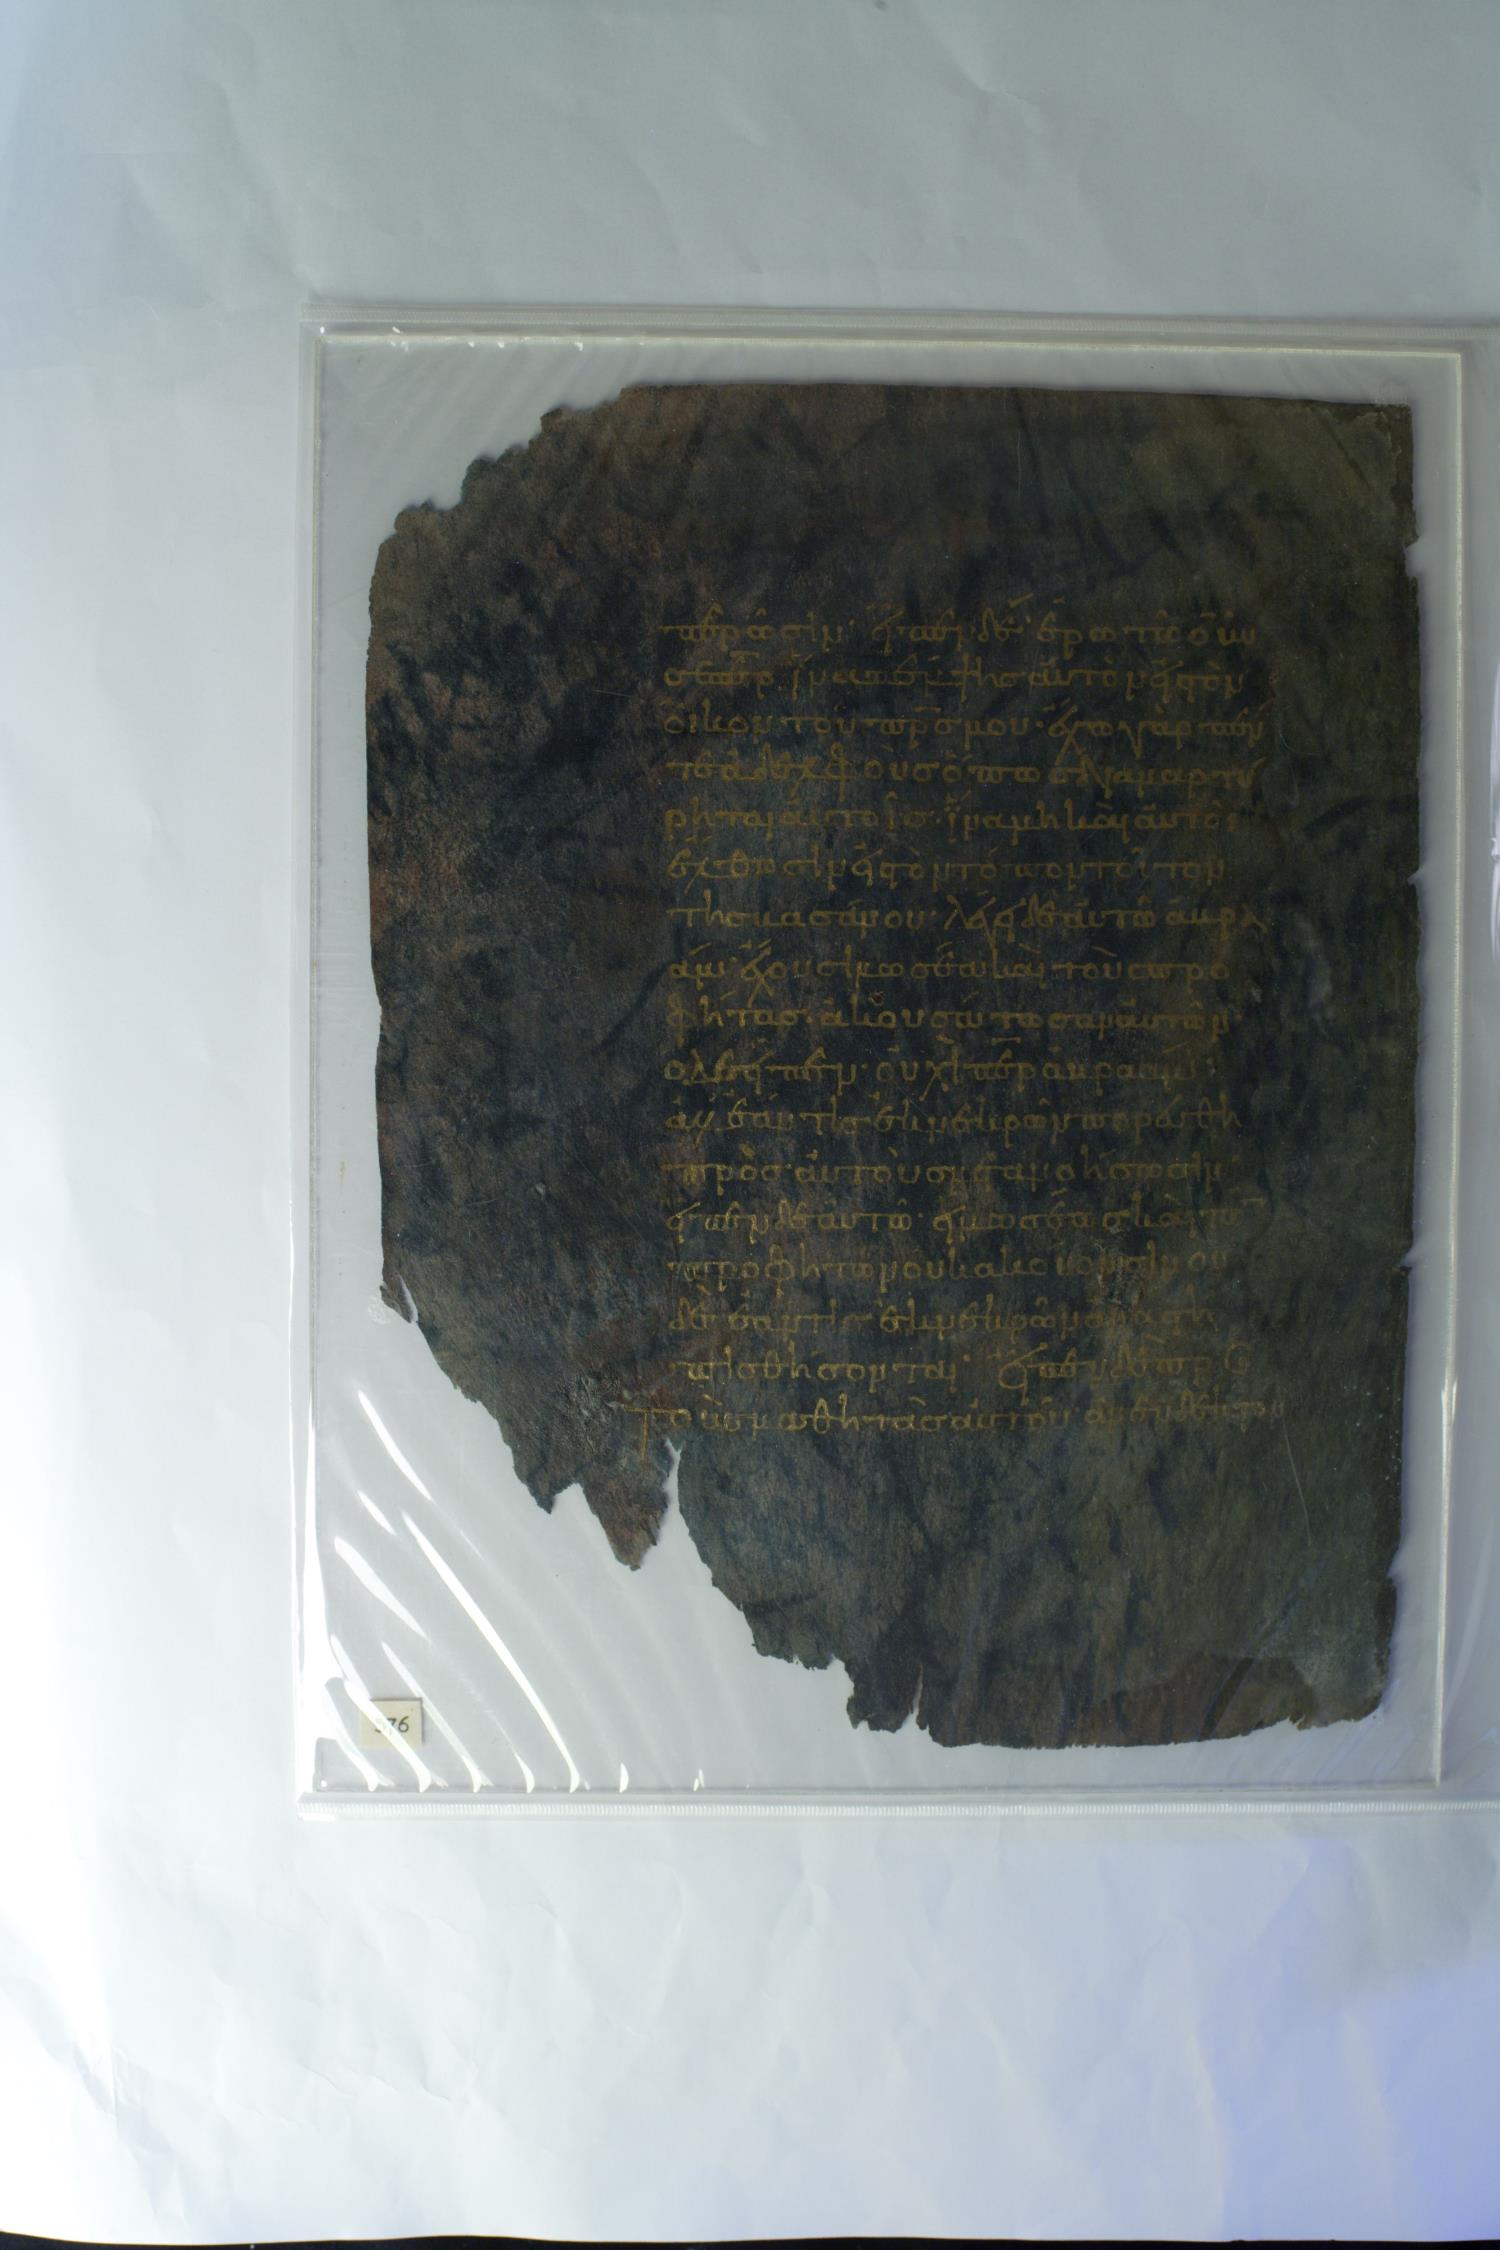 περῶσιν· εἶπεν δέ· ἐρωτῶ οὖν
σε περ ἵνα πέμψης αὐτὸν εἰς τὸν
οἶκον τοῦ πρς μου· ἔχω γὰρ πέν
τε ἀδελφοὺς ὅπως διαμαρτύ
ρηται αὐτοῖς· ἵνα μὴ καὶ αὐτοὶ
ἔλθωσιν εἰς τὸν τόπον τοῦτον
τῆς βασάνου· λέγει δὲ αὐτῶ ἀβρα
άμ· ἔχουσι μωσέα καὶ τοὺς προ
φήτας· ἀκουσάτωσαν αὐτῶν·
ὁ δὲ εἶπεν· οὐχὶ περ ἀβραάμ·
ἀλλ' ἐάν τις ἐκ νεκρῶν πορευθῆ
πρὸς αὐτοὺς μετανοήσωσιν·
εἶπεν δὲ αὐτῶ· εἰ μωσέως καὶ τῶν
προφητῶν οὐκ ἀκούουσιν οὐ
δὲ ἐάν τις ἐκ νεκρῶν ἀναστῆ
πισθήσονται· εἶπεν δὲ πρὸς
τοὺς μαθητὰς αὐτοῦ· ἀνένδεκτον
576